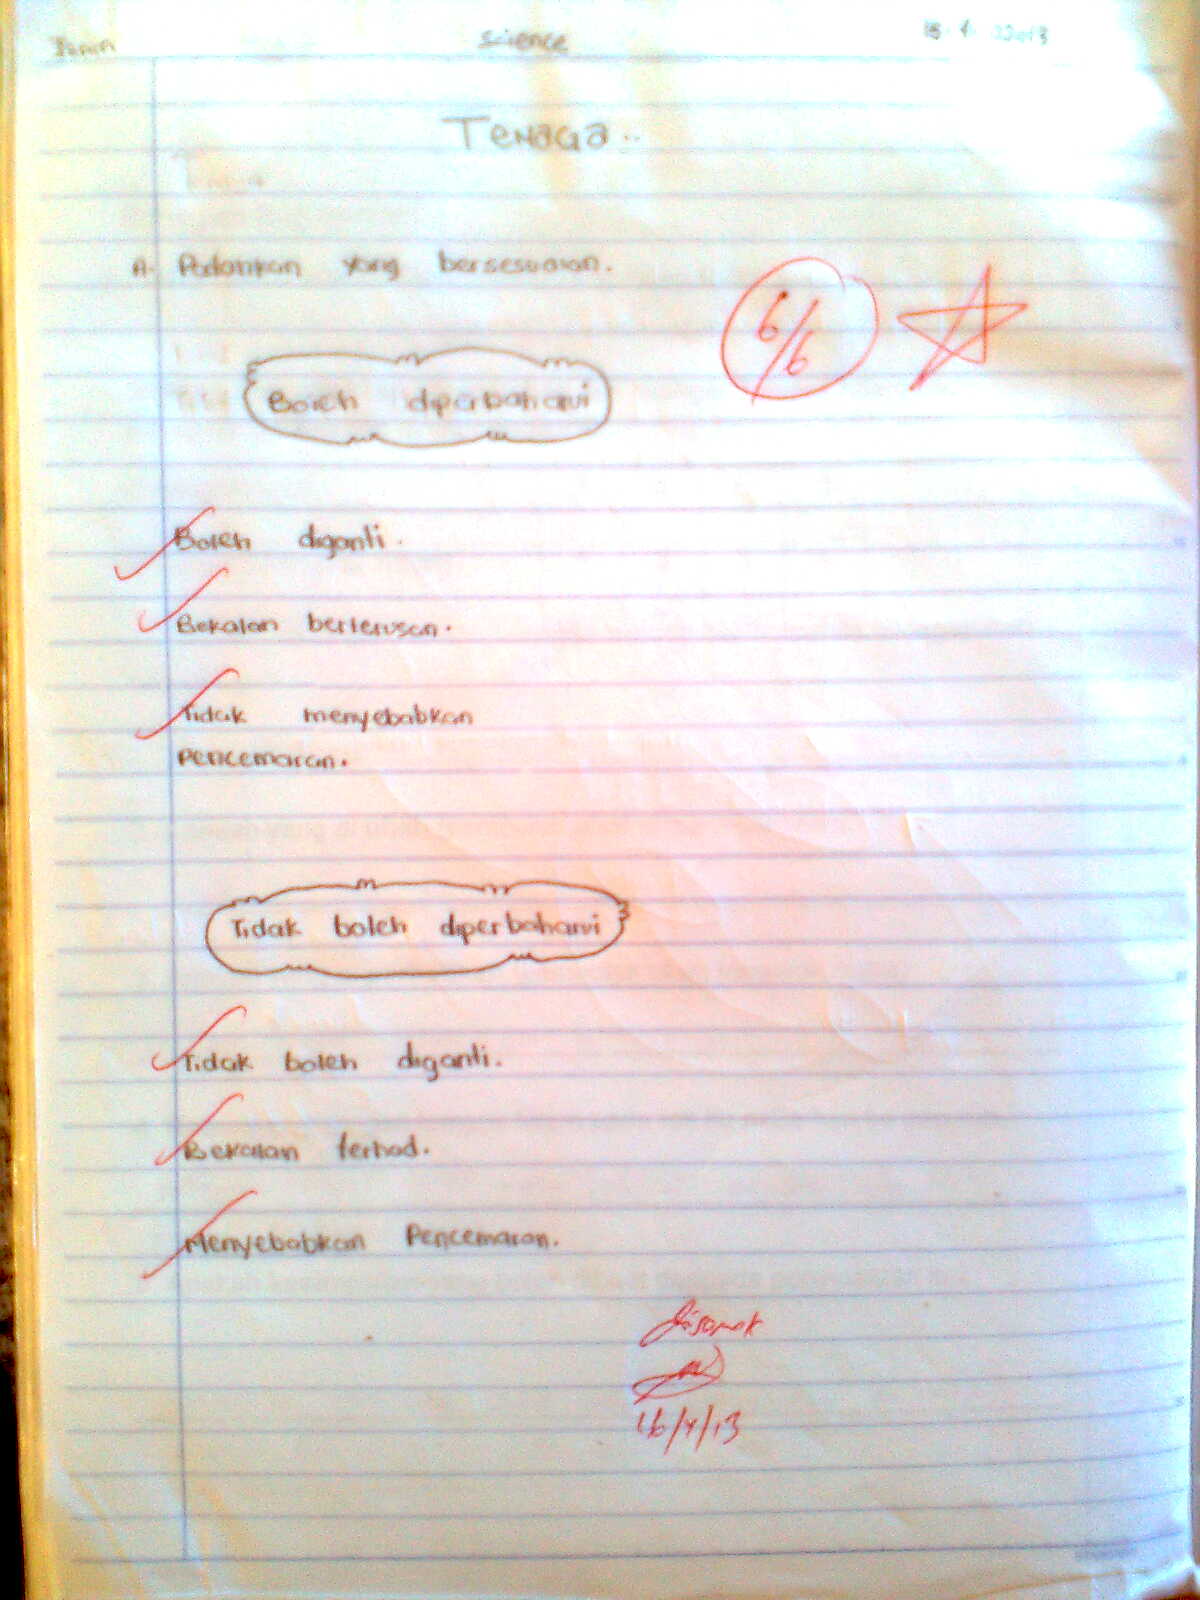 Isnin science 15.4.2013
Tenaga..
A. Padankan yang bersesuaian.
6/6
Boleh diperbaharui
Boleh diganti.
Bekalan berterusan.
Tidak menyebabkan
pencemaran.
Tidak boleh diperbaharui
Tidak boleh diganti.
Bekalan terhad.
Menyebabkan Pencemaran.
disemak
16/4/13